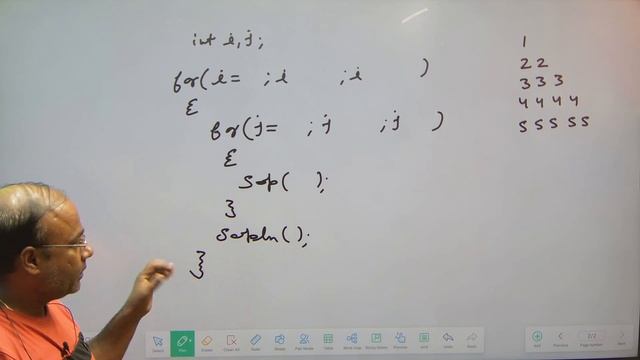 int i, j;
for(i= ;i ;i )
{
for(j= ;j ;j )
{
Sop( );
}
Sopln();
}
1
2 2
3 3 3
4 4 4 4
5 5 5 5 5
Select
Pen
Eraser
Clear All
Ruler
Shape
Table
Sticky Notes
Undo
Redo
Add
2/2
Page number
Next